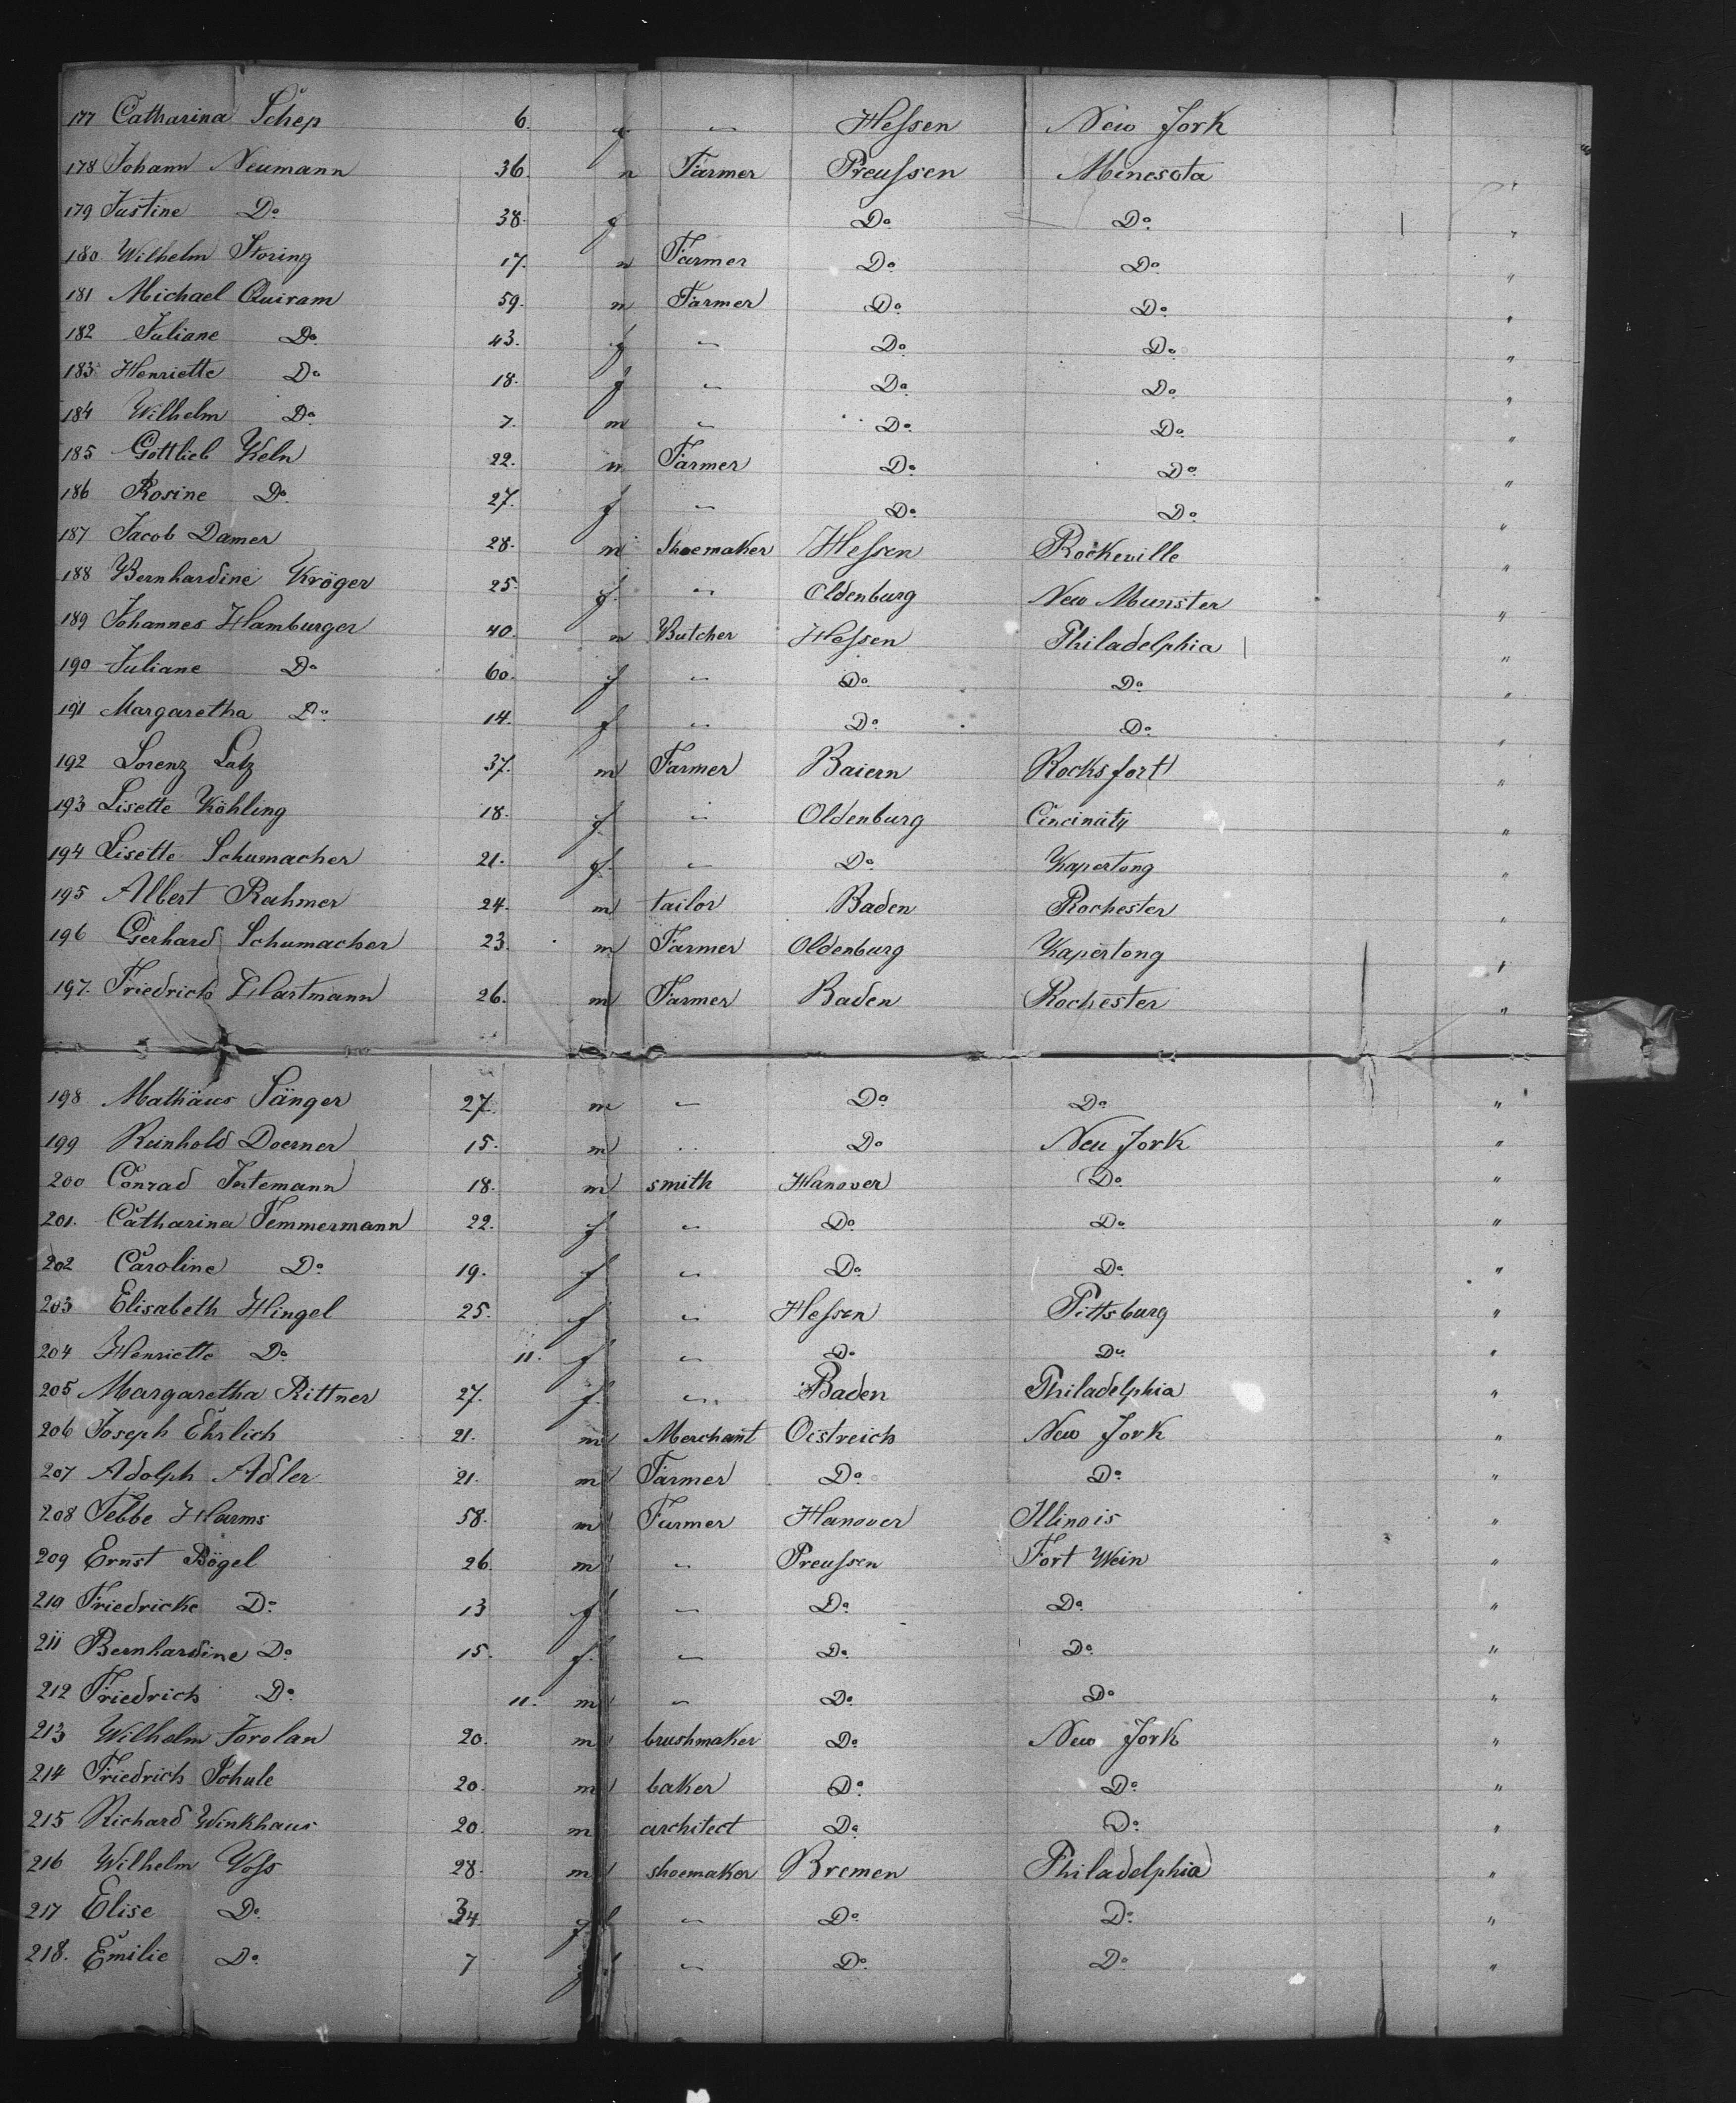 177 Catharina Schep 6. f " Hessen New York
178 Johann Neumann 36. m Farmer Preussen Minesota "
179 Justine Do 38. f Do Do "
180 Wilhelm Storing 17. m Farmer Do Do "
181 Michael Quiram 59. m Farmer Do Do "
182 Juliane Do 43. f " Do Do "
183 Henriette Do 18. f " Do Do "
184 Wilhelm Do 7. m " Do Do "
185 Gottlieb Keln 22. m Farmer Do Do "
186 Rosine Do 27. f " Do Do "
187 Jacob Damer 28. m Shoemaker Hessen Rockeville "
188 Bernhardine Kröger 25. f " Oldenburg New Munster "
189 Johannes Hamburger 40. m Butcher Hessen Philadelphia "
190 Juliane Do 60. f " Do Do "
191 Margaretha Do 14. f " Do Do "
192 Lorenz Latz 37. m Farmer Baiern Rocksfort "
193 Lisette Köhling 18. f " Oldenburg Cincinaty "
194 Lisette Schumacher 21. f " Do Kapertong "
195 Albert Rahmer 24. m tailor Baden Rochester "
196 Gerhard Schumacher 23. m Farmer Oldenburg Kapertong "
197. Friedrich Hartmann 26. m Farmer Baden Rochester "
198 Mathäus Sänger 27. m " Do Do "
199 Reinhold Doerner 15. m " Do New York "
200 Conrad Intemann 18. m smith Hanover Do "
201. Catharina Temmermann 22. f " Do Do "
202 Caroline Do 19. f " Do Do "
203 Elisabeth Hingel 25. f " Hessen Pittsburg "
204 Henriette Do 11. f " Do Do "
205 Margaretha Rittner 27. f " Baden Philadelphia "
206 Joseph Ehrlich 21. m Merchant Oestreich New York "
207 Adolph Adler 21. m Farmer Do Do "
208 Tebbe Harms 58. m Farmer Hanover Illinois "
209 Ernst Bögel 26 m " Preussen Fort Wein "
210 Friedricke Do 13 f " Do Do "
211 Bernhardine Do 15. f " Do Do "
212 Friedrich Do 11. m " Do Do "
213 Wilhelm 20. m brushmaker Do New York "
214 Friedrich Schule 20. m baker Do Do "
215 Richard Winkhaus 20. m architect Do Do "
216 Wilhelm Voss 28. m shoemaker Bremen Philadelphia "
217 Elise Do 34. f " Do Do "
218. Emilie Do 7 f " Do Do "